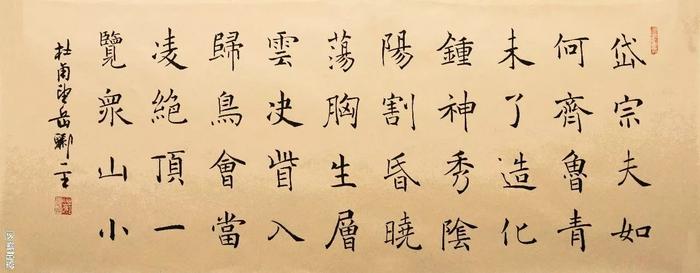 岱宗夫如
何齊魯青
未了造化
鍾神秀陰
陽割昏曉
蕩胸生層
雲决眥入
歸鳥會當
凌絶頂一
覽衆山小
杜甫望岳